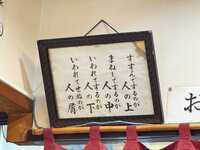 すすんでするのが
人の上
まねしてするのが
人の中
いわれてするのが
人の下
いわれてせぬのが
人の屑
お